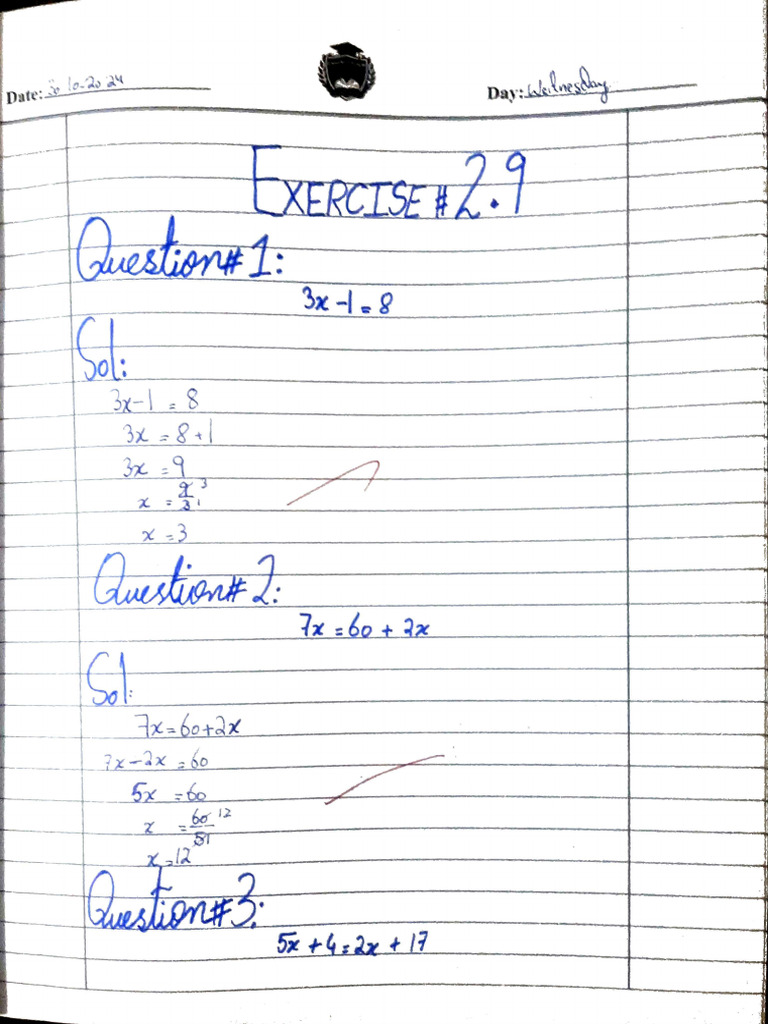 Date: 30-10-2024
Day: Wednesday
EXERCISE # 2.9
Question# 1:
3x-1=8
Sol:
3x-1 = 8
3x = 8+1
3x = 9
x = 9/3 3 1
x = 3
Question# 2:
7x = 60 + 2x
Sol:
7x = 60+2x
7x-2x = 60
5x = 60
x = 60/5 12 1
x = 12
Question#3:
5x + 4 = 2x + 17